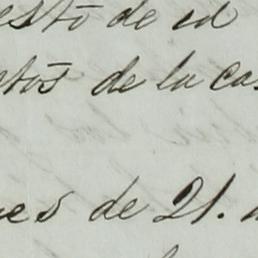 esto de ed
stos de la cas
es de 21.